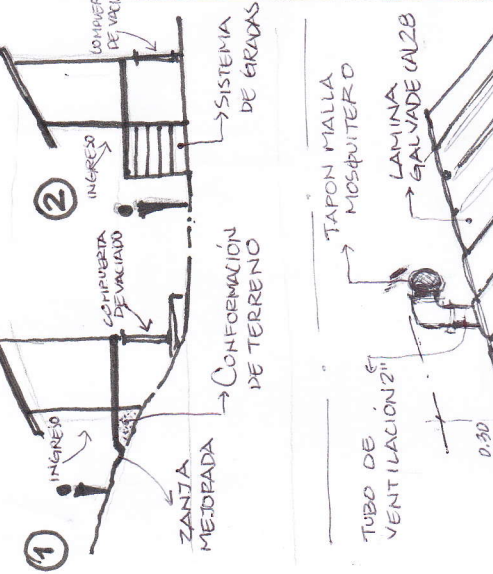 1
INGRESO
ZANJA
MEJORADA
COMPUERTA
DE VACIADO
CONFORMACIÓN
DE TERRENO
2
INGRESO
COMPUER
DE VACIA
SISTEMA
DE GRADAS
TUBO DE
VENTILACIÓN 2"
0.30
TAPON MALLA
MOSQUITERO
LAMINA
GALVADE CAL28